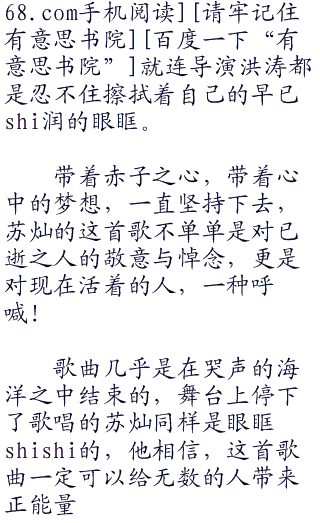 68.com手机阅读][请牢记住
有意思书院][百度一下“有
意思书院”]就连导演洪涛都
是忍不住擦拭着自己的早已
shi润的眼眶。
带着赤子之心，带着心
中的梦想，一直坚持下去，
苏灿的这首歌不单单是对已
逝之人的敬意与悼念，更是
对现在活着的人，一种呼
喊！
歌曲几乎是在哭声的海
洋之中结束的，舞台上停下
了歌唱的苏灿同样是眼眶
shishi的，他相信，这首歌
曲一定可以给无数的人带来
正能量